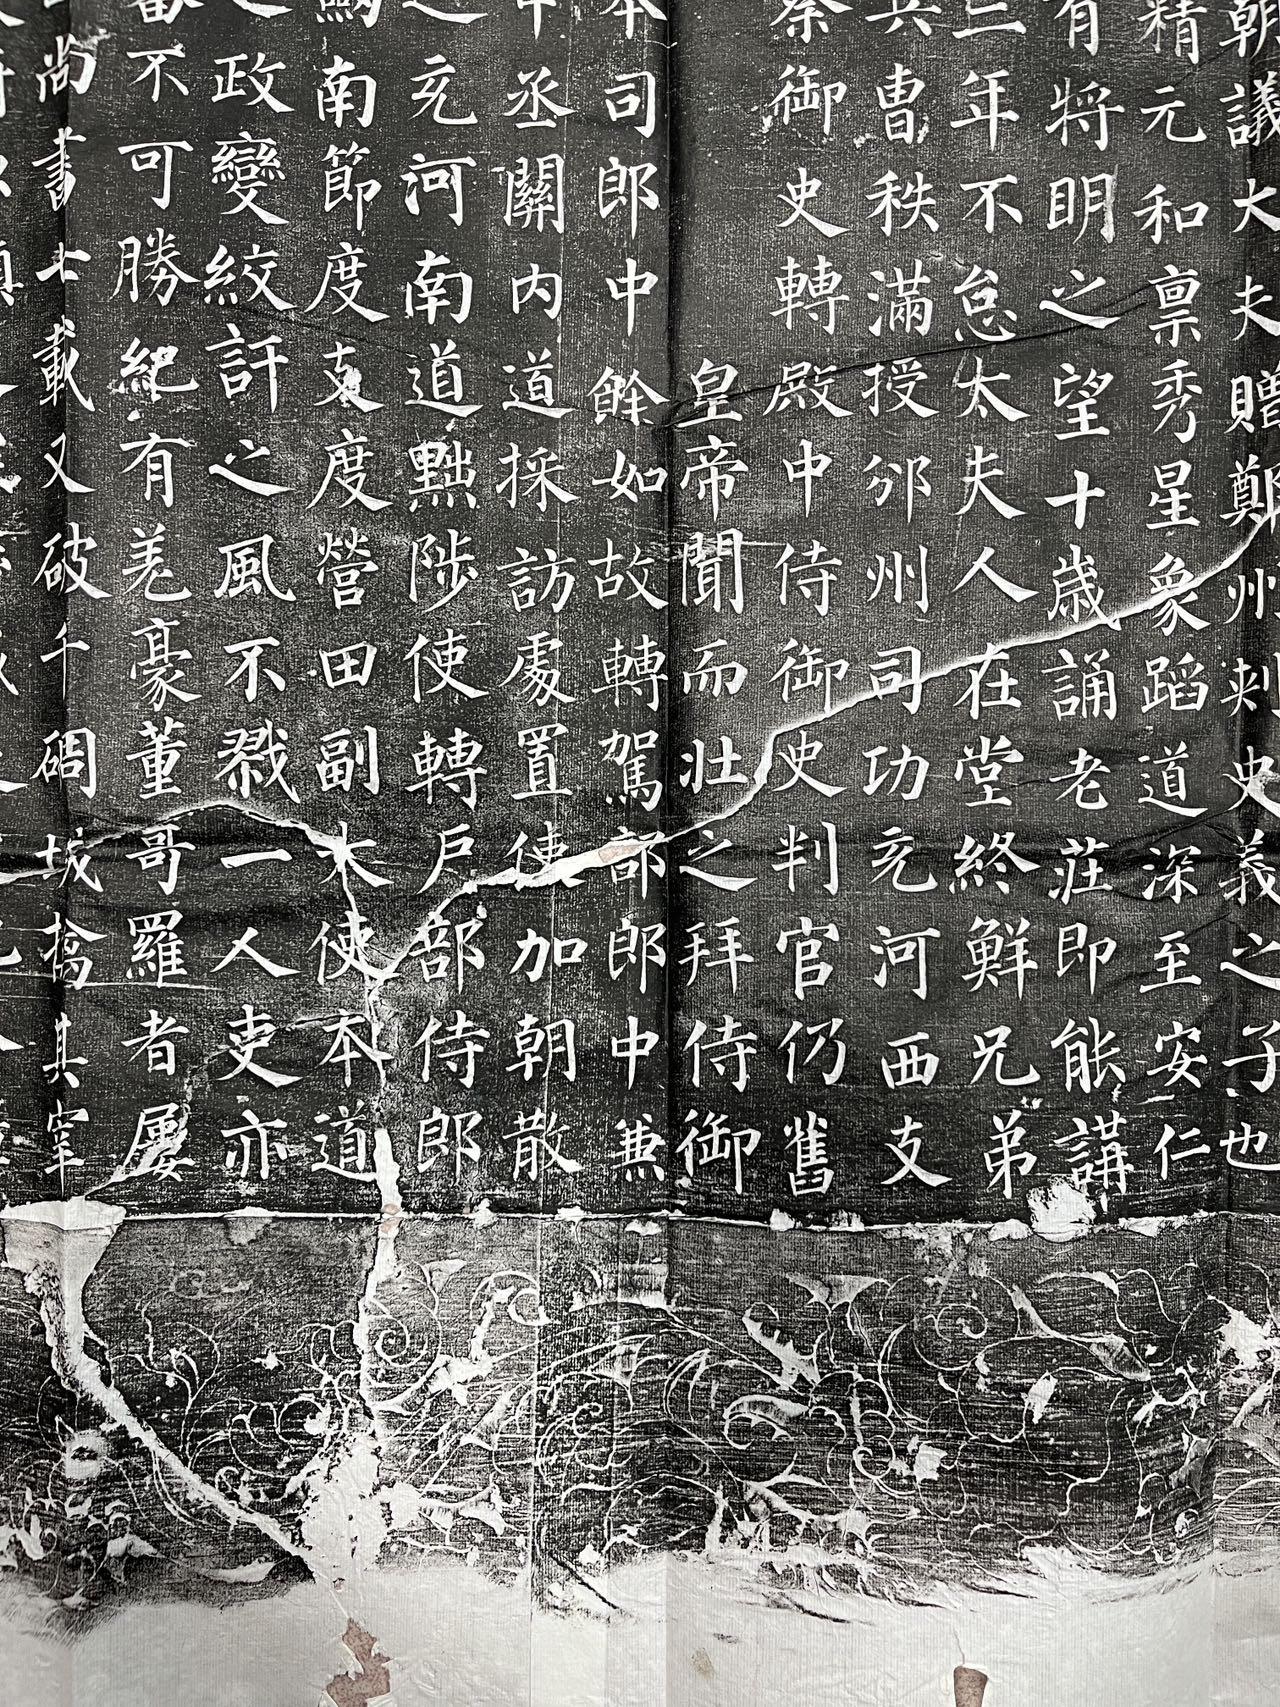 朝議大夫贈鄭州刺史義之子也
精元和禀秀星象蹈道深至安仁
有將明之望十歳誦老莊即能講
三年不怠太夫人在堂終鮮兄弟
兵曹秩滿授邠州司功充河西支
察御史轉殿中侍御史判官仍舊
皇帝聞而壯之拜侍御
本司郎中餘如故轉駕部郎中兼
中丞關内道採訪處置使加朝散
之充河南道黜陟使轉戶部侍郎
劒南節度支度營田副大使本道
之政變絞訐之風不戮一人吏亦
歡不可勝紀有羌豪董哥羅者屢
尚書七載又破千碉城擒其宰